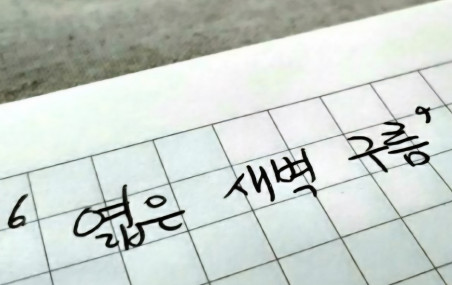 6 엷은 새벽 구름,